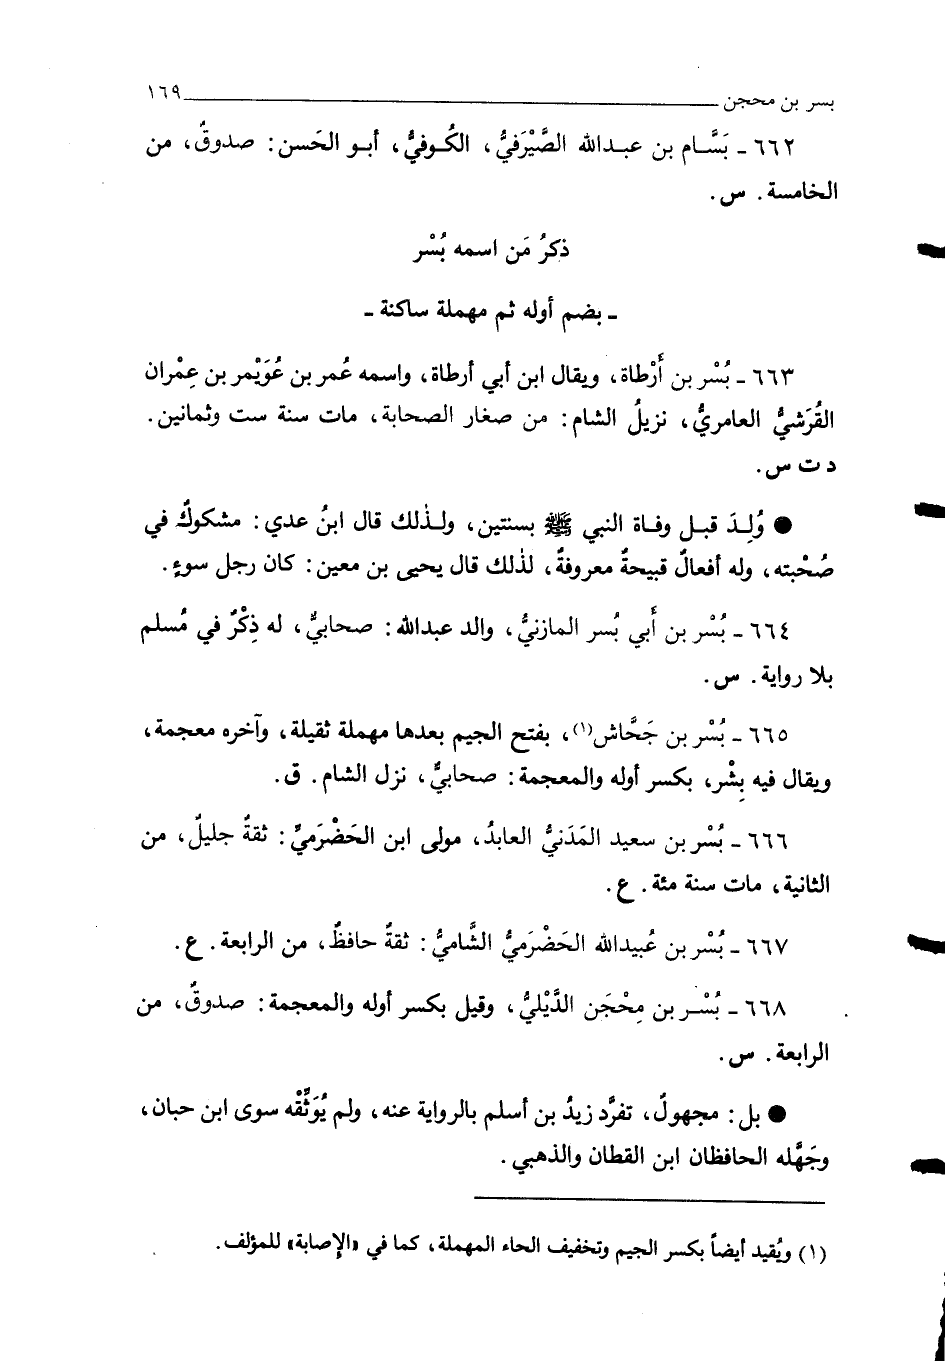 بسر بن محجن ــــــــــــــــــــ ١٦٩
٦٦٢ ـ بَسَّام بن عبدالله الصَّيْرَفيُّ، الكُوفيُّ، أبو الحَسن: صدوقٌ، من
الخامسة. س.
ذكرُ مَن اسمه بُسْر
ـ بضم أوله ثم مهملة ساكنة ـ
٦٦٣ ـ بُسْر بن أَرْطاة، ويقال ابن أبي أرطاة، واسمه عُمر بن عُوَيْمر بن عِمْران
القُرَشيُّ العامريُّ، نزيلُ الشام: من صغار الصحابة، مات سنة ست وثمانين.
د ت س.
● وُلِدَ قبل وفاة النبي ﷺ بسنتين، ولذٰلك قال ابنُ عدي: مشكوكٌ في
صُحْبته، وله أفعالٌ قبيحةٌ معروفةٌ، لذٰلك قال يحيى بن معين: كان رجل سوءٍ.
٦٦٤ ـ بُسْر بن أَبي بُسر المازنيُّ، والد عبدالله: صحابيٌّ، له ذِكْرٌ في مُسلم
بلا رواية. س.
٦٦٥ ـ بُسْر بن جَحَّاش(١)، بفتح الجيم بعدها مهملة ثقيلة، وآخره معجمة،
ويقال فيه بِشْر، بكسر أوله والمعجمة: صحابيٌّ، نزل الشام. ق.
٦٦٦ ـ بُسْر بن سعيد المَدَنيُّ العابدُ، مولى ابن الحَضْرَميِّ: ثقةٌ جليلٌ، من
الثانية، مات سنة مئة. ع.
٦٦٧ ـ بُسْر بن عُبيدالله الحَضْرَميُّ الشَّاميُّ: ثقةٌ حافظٌ، من الرابعة. ع.
٦٦٨ ـ بُسْر بن مِحْجَن الدَّيْليُّ، وقيل بكسر أوله والمعجمة: صدوقٌ، من
الرابعة. س.
● بل: مجهولٌ، تفرَّد زيدُ بن أسلم بالرواية عنه، ولم يُوَثِّقْه سوى ابن حبان،
وجَهَّله الحافظان ابن القطان والذهبي.
(١) ويُقيد أيضاً بكسر الجيم وتخفيف الحاء المهملة، كما في «الإصابة» للمؤلف.